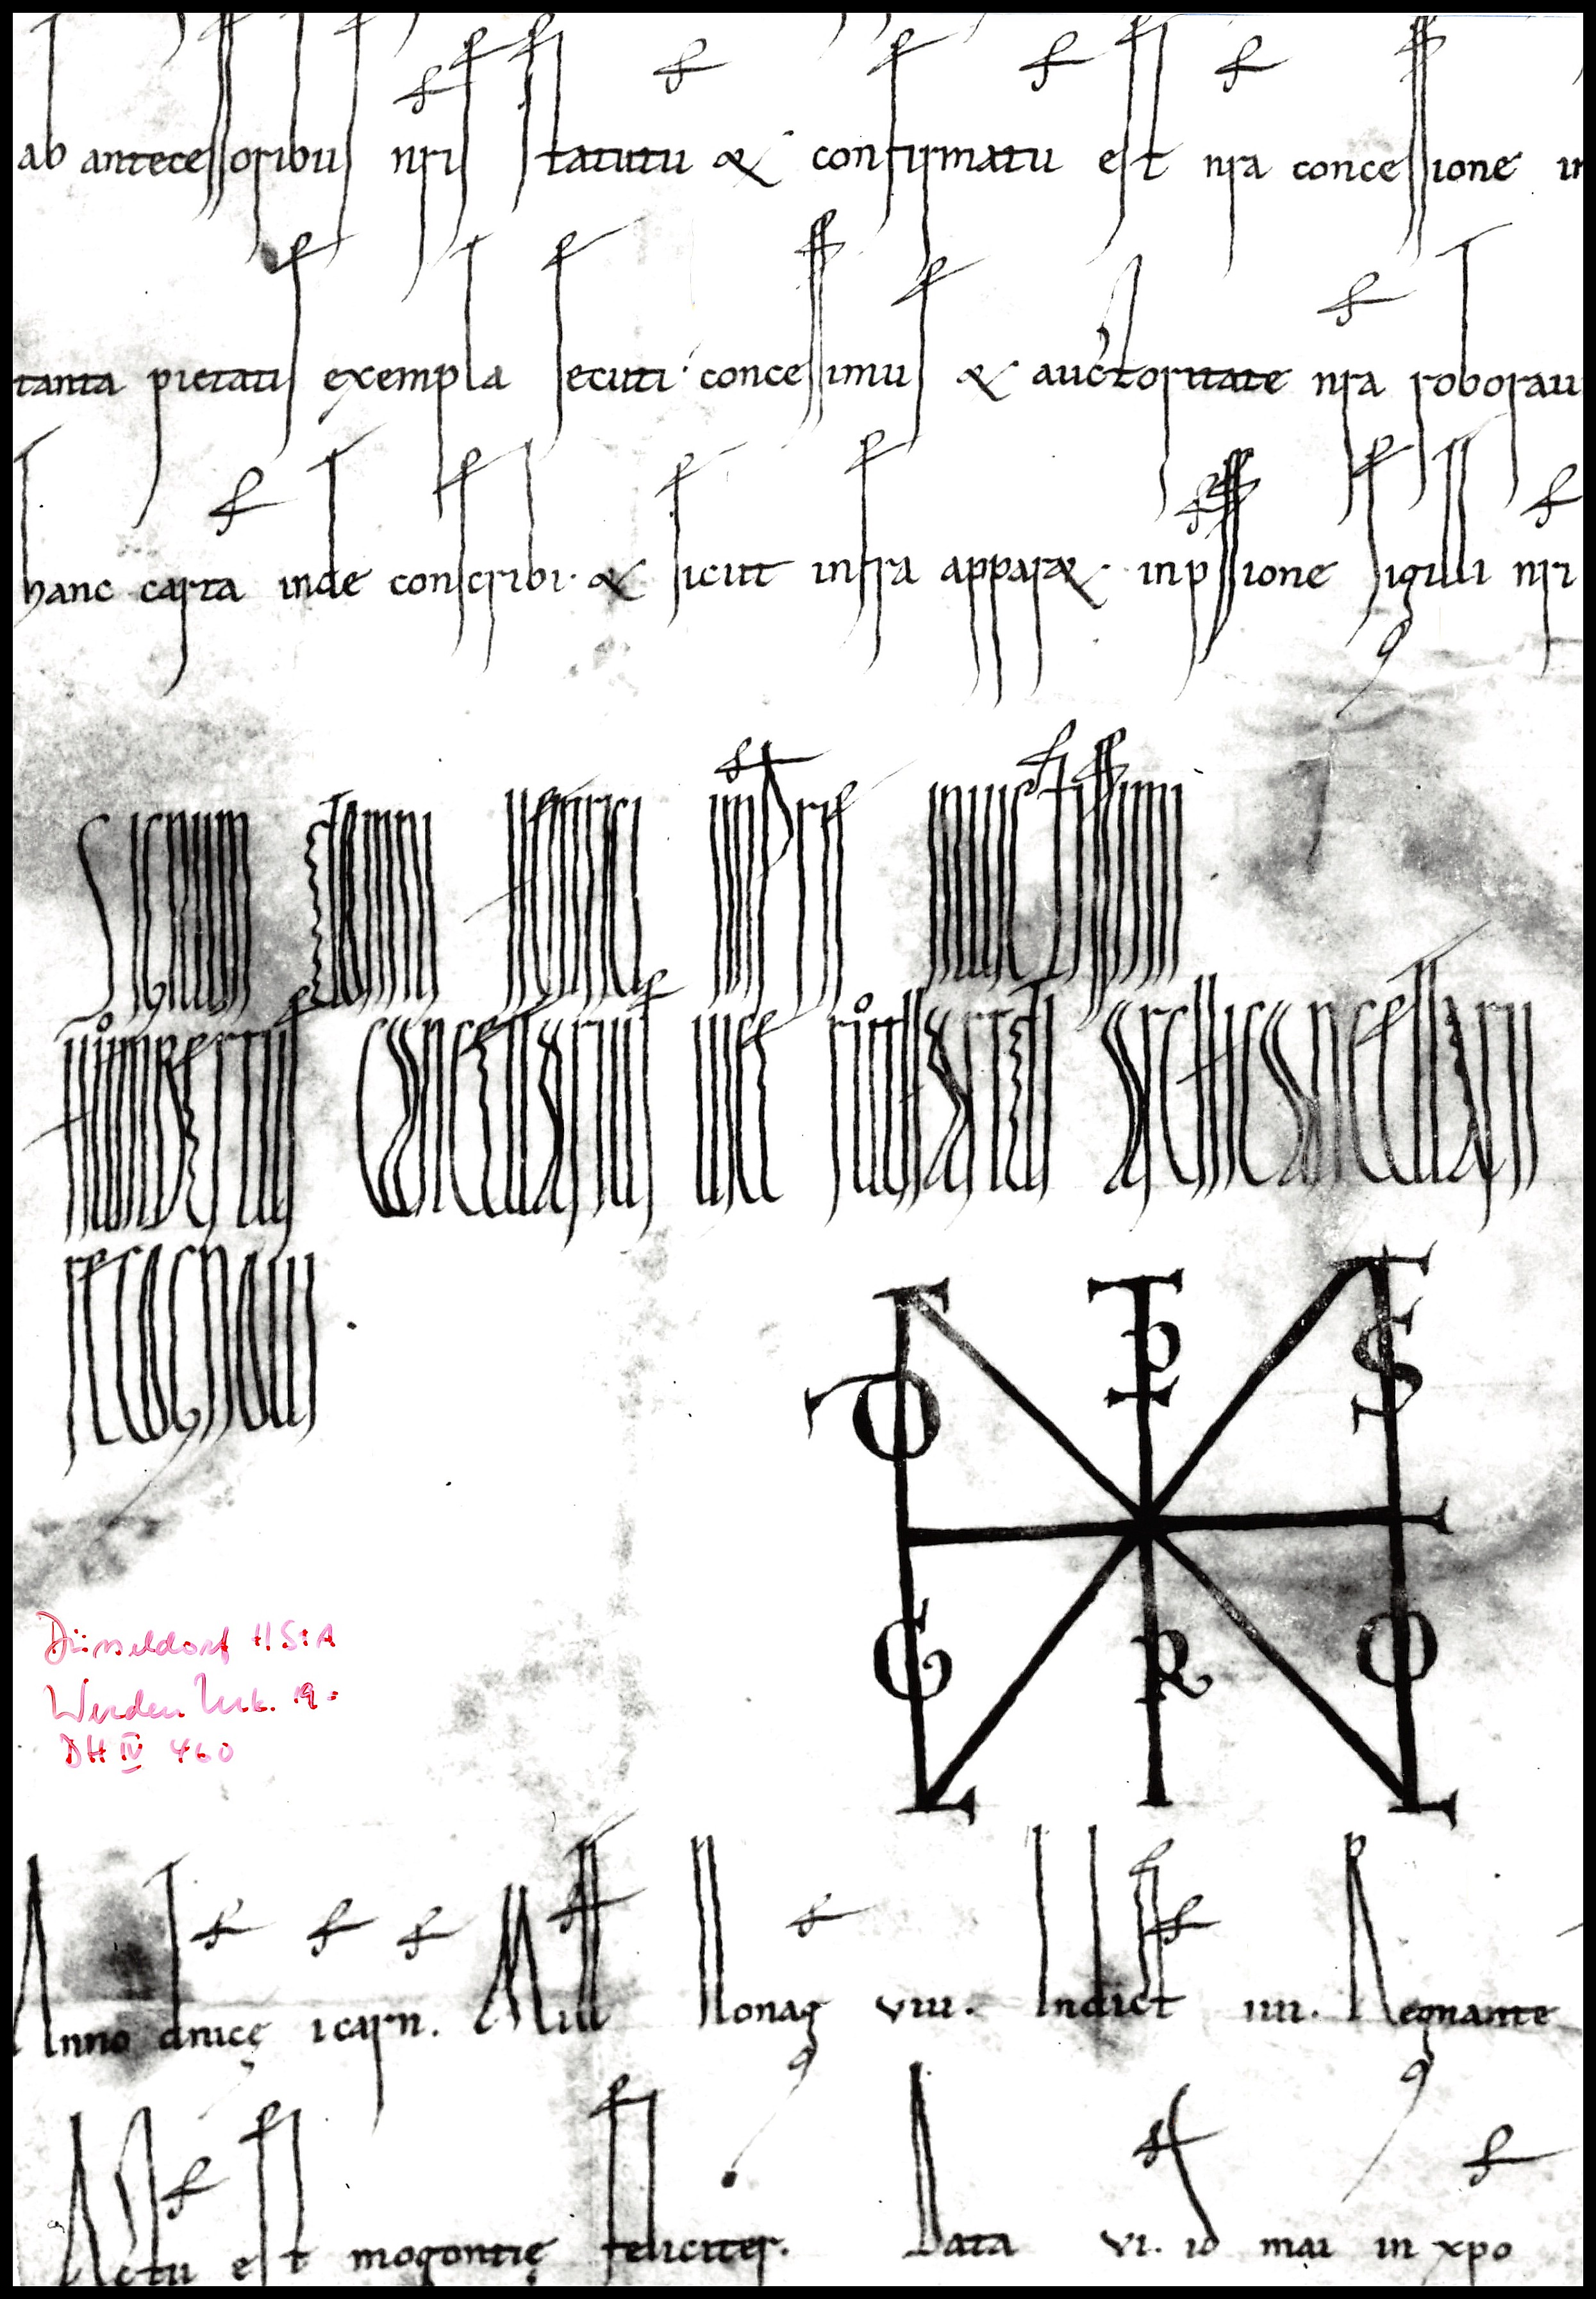 ab antecessoribus nris statutu & confirmatu est nra concessione in
tanta pietatis exempla secuti concessimus & auctoritate nra roborau
hanc carta inde conscribi & sicut infra apparet inpssione sigilli nri
Signum domni Heinrici impris inuictissimi
Humbertus cancellarius uice Ruothardi archicancellarii
recognoui
Düsseldorf HStA
Werden Urk. 19
DH IV 460
Anno dnicę icarn. Mill Nonag viii. Indict iiii. Regnante
Actu est mogontię feliciter. Data vi. id mai in xpo